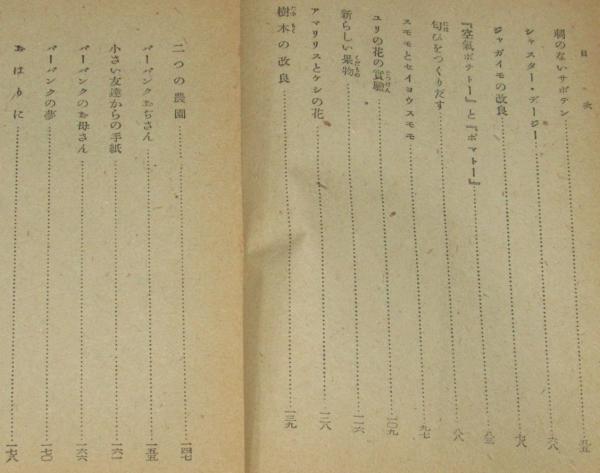 目次
棘のないサボテン……五五
シャスター・デージー……六八
ジャガイモの改良……七八
『空氣ポテトー』と『ポマトー』……八三
匂ひをつくりだす……八八
スモモとセイヨウスモモ……九七
ユリの花の實驗……一〇九
新らしい果物……一一六
アマリリスとケシの花……一二八
樹木の改良……一三九
二つの農園……一四七
バーバンクおぢさん……一五五
小さい友達からの手紙……一六一
バーバンクのお母さん……一六六
バーバンクの夢……一七〇
おはりに……一七八